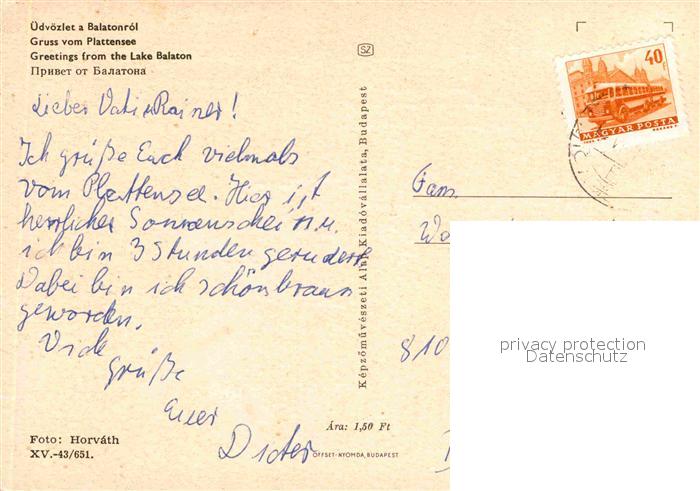 Üdvözlet a Balatonról
Gruss vom Plattensee
Greetings from the Lake Balaton
Привет от Балатона
Lieber Vati u Rainer!
Ich grüße Euch vielmals
vom Plattensee. Hier ist
herrlicher Sonnenschein u.
ich bin 3 Stunden gerudert.
Dabei bin ich schön braun
geworden.
Viele
Grüße
Euer
Dieter
Foto: Horváth
XV.-43/651.
SZ
Képzőművészeti Alap Kiadóvállalata, Budapest
Ára: 1,50 Ft
OFFSET-NYOMDA, BUDAPEST
40f
MAGYAR POSTA
Fam.
810
privacy protection
Datenschutz